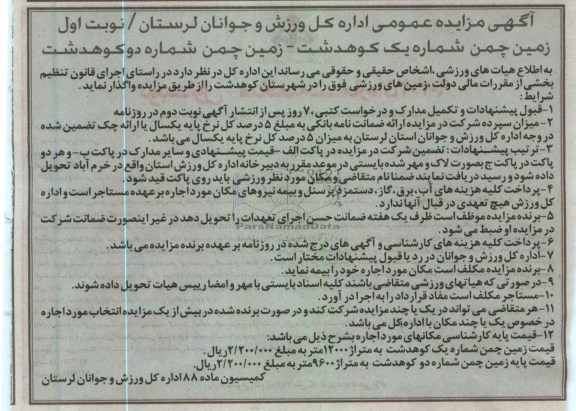 آگهی مزایده عمومی اداره کل ورزش و جوانان لرستان / نوبت اول
زمین چمن شماره یک کوهدشت - زمین چمن شماره دو کوهدشت
به اطلاع هیات های ورزشی، اشخاص حقیقی و حقوقی می رساند این اداره کل در نظر دارد در راستای اجرای قانون تنظیم
بخشی از مقررات مالی دولت، زمین های ورزشی فوق را در شهرستان کوهدشت را از طریق مزایده واگذار نماید.
شرایط:
۱-قبول پیشنهادات و تکمیل مدارک و درخواست کتبی، ۷ روز پس از انتشار آگهی نوبت دوم در روزنامه
۲- میزان سپرده شرکت در مزایده ارائه ضمانت نامه بانکی به مبلغ ۵ درصد کل نرخ پایه یکسال یا ارائه چک تضمین شده
در وجه اداره کل ورزش و جوانان استان لرستان به میزان ۵ درصد کل نرخ پایه یکسال می باشد.
۳-ترتیب پیشنهادات: تضمین شرکت در مزایده در پاکت الف -قیمت پیشنهادی و سایر مدارک در پاکت ب- و هر دو
پاکت در پاکت ج بصورت لاک و مهر شده بایستی در موعد مقرر به دبیرخانه اداره کل ورزش استان واقع در خرم آباد تحویل
داده شود و رسید دریافت نمایند ضمنا نام متقاضی و مکان مورد نظر ورزشی باید روی پاکت قید شود.
۴-پرداخت کلیه هزینه های آب، برق، گاز، دستمزد پرسنل و بیمه نیروهای مکان مورد اجاره بر عهده مستاجر است و اداره
کل ورزش هیچ تعهدی در قبال آنها ندارد.
۵-برنده مزایده موظف است ظرف یک هفته ضمانت حسن اجرای تعهدات را تحویل دهد در غیر اینصورت ضمانت شرکت
در مزایده او ضبط می شود.
ParsNamadData
۶-پرداخت کلیه هزینه های کارشناسی و آگهی های درج شده در روزنامه بر عهده برنده مزایده می باشد.
۷-اداره کل ورزش و جوانان در رد یا قبول پیشنهادات مختار است.
۸-برنده مزایده مکلف است مکان مورد اجاره خود را بیمه نماید.
۹-در صورتی که هیاتهای ورزشی متقاضی باشند کلیه اسناد بایستی با مهر و امضا رییس هیات تحویل داده شوند.
۱۰-مستاجر مکلف است مفاد قرارداد را به اجرا در آورد.
۱۱-هر متقاضی می تواند در یک یا چند مزایده شرکت کند و در صورت برنده شدن در بیش از یک مزایده انتخاب مورد اجاره
در خصوص یک یا چند مکان با اداره کل می باشد.
۱۲-قیمت پایه کارشناسی مکانهای مورد اجاره بشرح ذیل می باشد:
قیمت زمین چمن شماره یک کوهدشت به متراژ ۱۲۰۰۰متر به مبلغ ۲/۲۰۰/۰۰۰ریال.
قیمت پایه زمین چمن شماره دو کوهدشت به متراژ ۹۶۰۰متر به مبلغ ۲/۲۰۰/۰۰۰ریال.
کمیسیون ماده ۸۸ اداره کل ورزش و جوانان لرستان